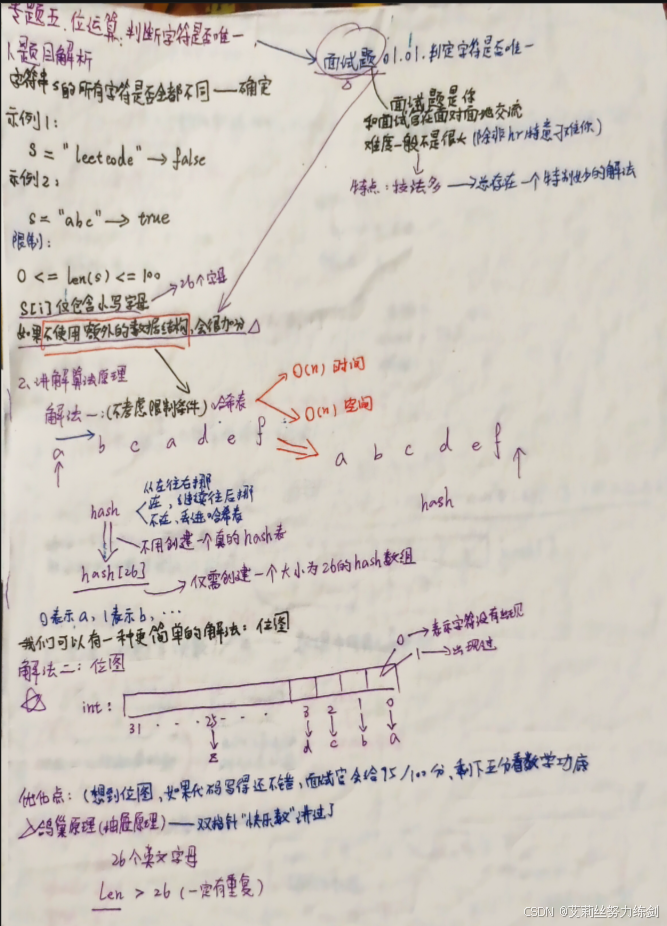 专题五、位运算：判断字符是否唯一
面试题 01.01.判定字符是否唯一
1、题目解析
字符串s的所有字符是否全都不同——确定
示例1：
s = "leetcode" → false
示例2：
s = "abc" → true
限制：
0 <= len(s) <= 100
s[i]仅包含小写字母 → 26个字母
如果不使用额外的数据结构，会很加分 △
面试题是你
和面试官在面对面地交流
难度一般不是很大（除非hr特意刁难你）
特点：解法多 → 总存在一个特别好的解法
2、讲解算法原理
解法一：(不考虑限制条件)：哈希表
O(n) 时间
O(n) 空间
a b c a d e f
a b c d e f
hash
从左往右挪
在，继续往后挪
不在，丢进哈希表
hash
不用创建一个真的hash表
hash[26] → 仅需创建一个大小为26的hash数组
0表示a，1表示b，…
我们可以有一种更简单的解法：位图
解法二：位图
0 → 表示字符没有出现
1 → 出现过
int：
31 . . . 25 . . . 3 2 1 0
z d c b a
优化点：(想到位图，如果代码写得还不错，面试官会给95/100分，剩下五分看数学功底
△鸽巢原理(抽屉原理) —— 双指针"快乐数"讲过了
26个英文字母
Len > 26 (一定有重复)
CSDN @艾莉丝努力练剑